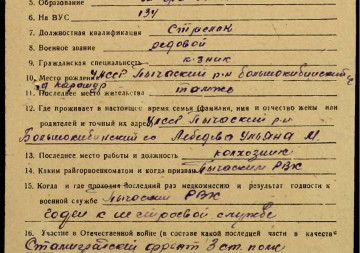 5. Образование
6. На ВУС 134
7. Должностная квалификация Стрелок
8. Военное звание рядовой
9. Гражданская специальность к-зник
10. Место рождения УАССР Пычаский р-н Большокибинский
11. Последнее место жительства также
12. Где проживает в настоящее время семья (фамилия, имя и отчество жены или
родителей и точный их адрес) УАССР Пычаский р-н
Большокибинский сс Лебедева Ульяна М.
13. Последнее место работы и должность колхозник
14. Каким райгорвоенкоматом и когда призван Пычаским РВК
15. Когда и где проходил последний раз медкомиссию и результат годности к
военной службе Пычаский РВК
годен к строевой службе
16. Участие в Отечественной войне (в составе какой последней части в качестве
Сталинградский фронт 3 ст. полк